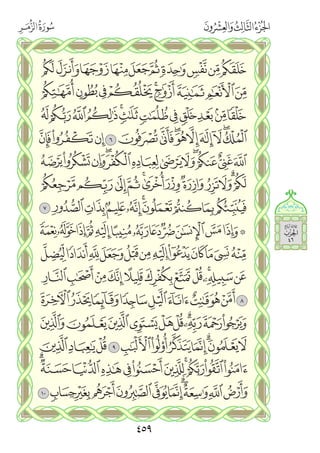 الجُزْءُ الثَّالِثُ وَالعِشْرُونَ سُورَةُ الزُّمَرِ
خَلَقَكُم مِّن نَّفْسٍ وَٰحِدَةٍ ثُمَّ جَعَلَ مِنْهَا زَوْجَهَا وَأَنزَلَ لَكُم
مِّنَ ٱلْأَنْعَٰمِ ثَمَٰنِيَةَ أَزْوَٰجٍ ۚ يَخْلُقُكُمْ فِى بُطُونِ أُمَّهَٰتِكُمْ
خَلْقًا مِّنۢ بَعْدِ خَلْقٍ فِى ظُلُمَٰتٍ ثَلَٰثٍ ۚ ذَٰلِكُمُ ٱللَّهُ رَبُّكُمْ لَهُ
ٱلْمُلْكُ ۖ لَآ إِلَٰهَ إِلَّا هُوَ ۖ فَأَنَّىٰ تُصْرَفُونَ ٦ إِن تَكْفُرُوا۟ فَإِنَّ
ٱللَّهَ غَنِىٌّ عَنكُمْ ۖ وَلَا يَرْضَىٰ لِعِبَادِهِ ٱلْكُفْرَ ۖ وَإِن تَشْكُرُوا۟ يَرْضَهُ
لَكُمْ ۗ وَلَا تَزِرُ وَازِرَةٌ وِزْرَ أُخْرَىٰ ۗ ثُمَّ إِلَىٰ رَبِّكُم مَّرْجِعُكُمْ
فَيُنَبِّئُكُم بِمَا كُنتُمْ تَعْمَلُونَ ۚ إِنَّهُۥ عَلِيمٌۢ بِذَاتِ ٱلصُّدُورِ ٧
۞ وَإِذَا مَسَّ ٱلْإِنسَٰنَ ضُرٌّ دَعَا رَبَّهُۥ مُنِيبًا إِلَيْهِ ثُمَّ إِذَا خَوَّلَهُۥ نِعْمَةً
مِّنْهُ نَسِىَ مَا كَانَ يَدْعُوٓا۟ إِلَيْهِ مِن قَبْلُ وَجَعَلَ لِلَّهِ أَندَادًا لِّيُضِلَّ
عَن سَبِيلِهِۦ ۚ قُلْ تَمَتَّعْ بِكُفْرِكَ قَلِيلًا ۖ إِنَّكَ مِنْ أَصْحَٰبِ ٱلنَّارِ
٨ أَمَّنْ هُوَ قَٰنِتٌ ءَانَآءَ ٱلَّيْلِ سَاجِدًا وَقَآئِمًا يَحْذَرُ ٱلْءَاخِرَةَ
وَيَرْجُوا۟ رَحْمَةَ رَبِّهِۦ ۗ قُلْ هَلْ يَسْتَوِى ٱلَّذِينَ يَعْلَمُونَ وَٱلَّذِينَ
لَا يَعْلَمُونَ ۗ إِنَّمَا يَتَذَكَّرُ أُو۟لُوا۟ ٱلْأَلْبَٰبِ ٩ قُلْ يَٰعِبَادِ ٱلَّذِينَ
ءَامَنُوا۟ ٱتَّقُوا۟ رَبَّكُمْ ۚ لِلَّذِينَ أَحْسَنُوا۟ فِى هَٰذِهِ ٱلدُّنْيَا حَسَنَةٌ ۗ
وَأَرْضُ ٱللَّهِ وَٰسِعَةٌ ۗ إِنَّمَا يُوَفَّى ٱلصَّٰبِرُونَ أَجْرَهُم بِغَيْرِ حِسَابٍ ١٠
الحزب
٤٦
٤٥٩